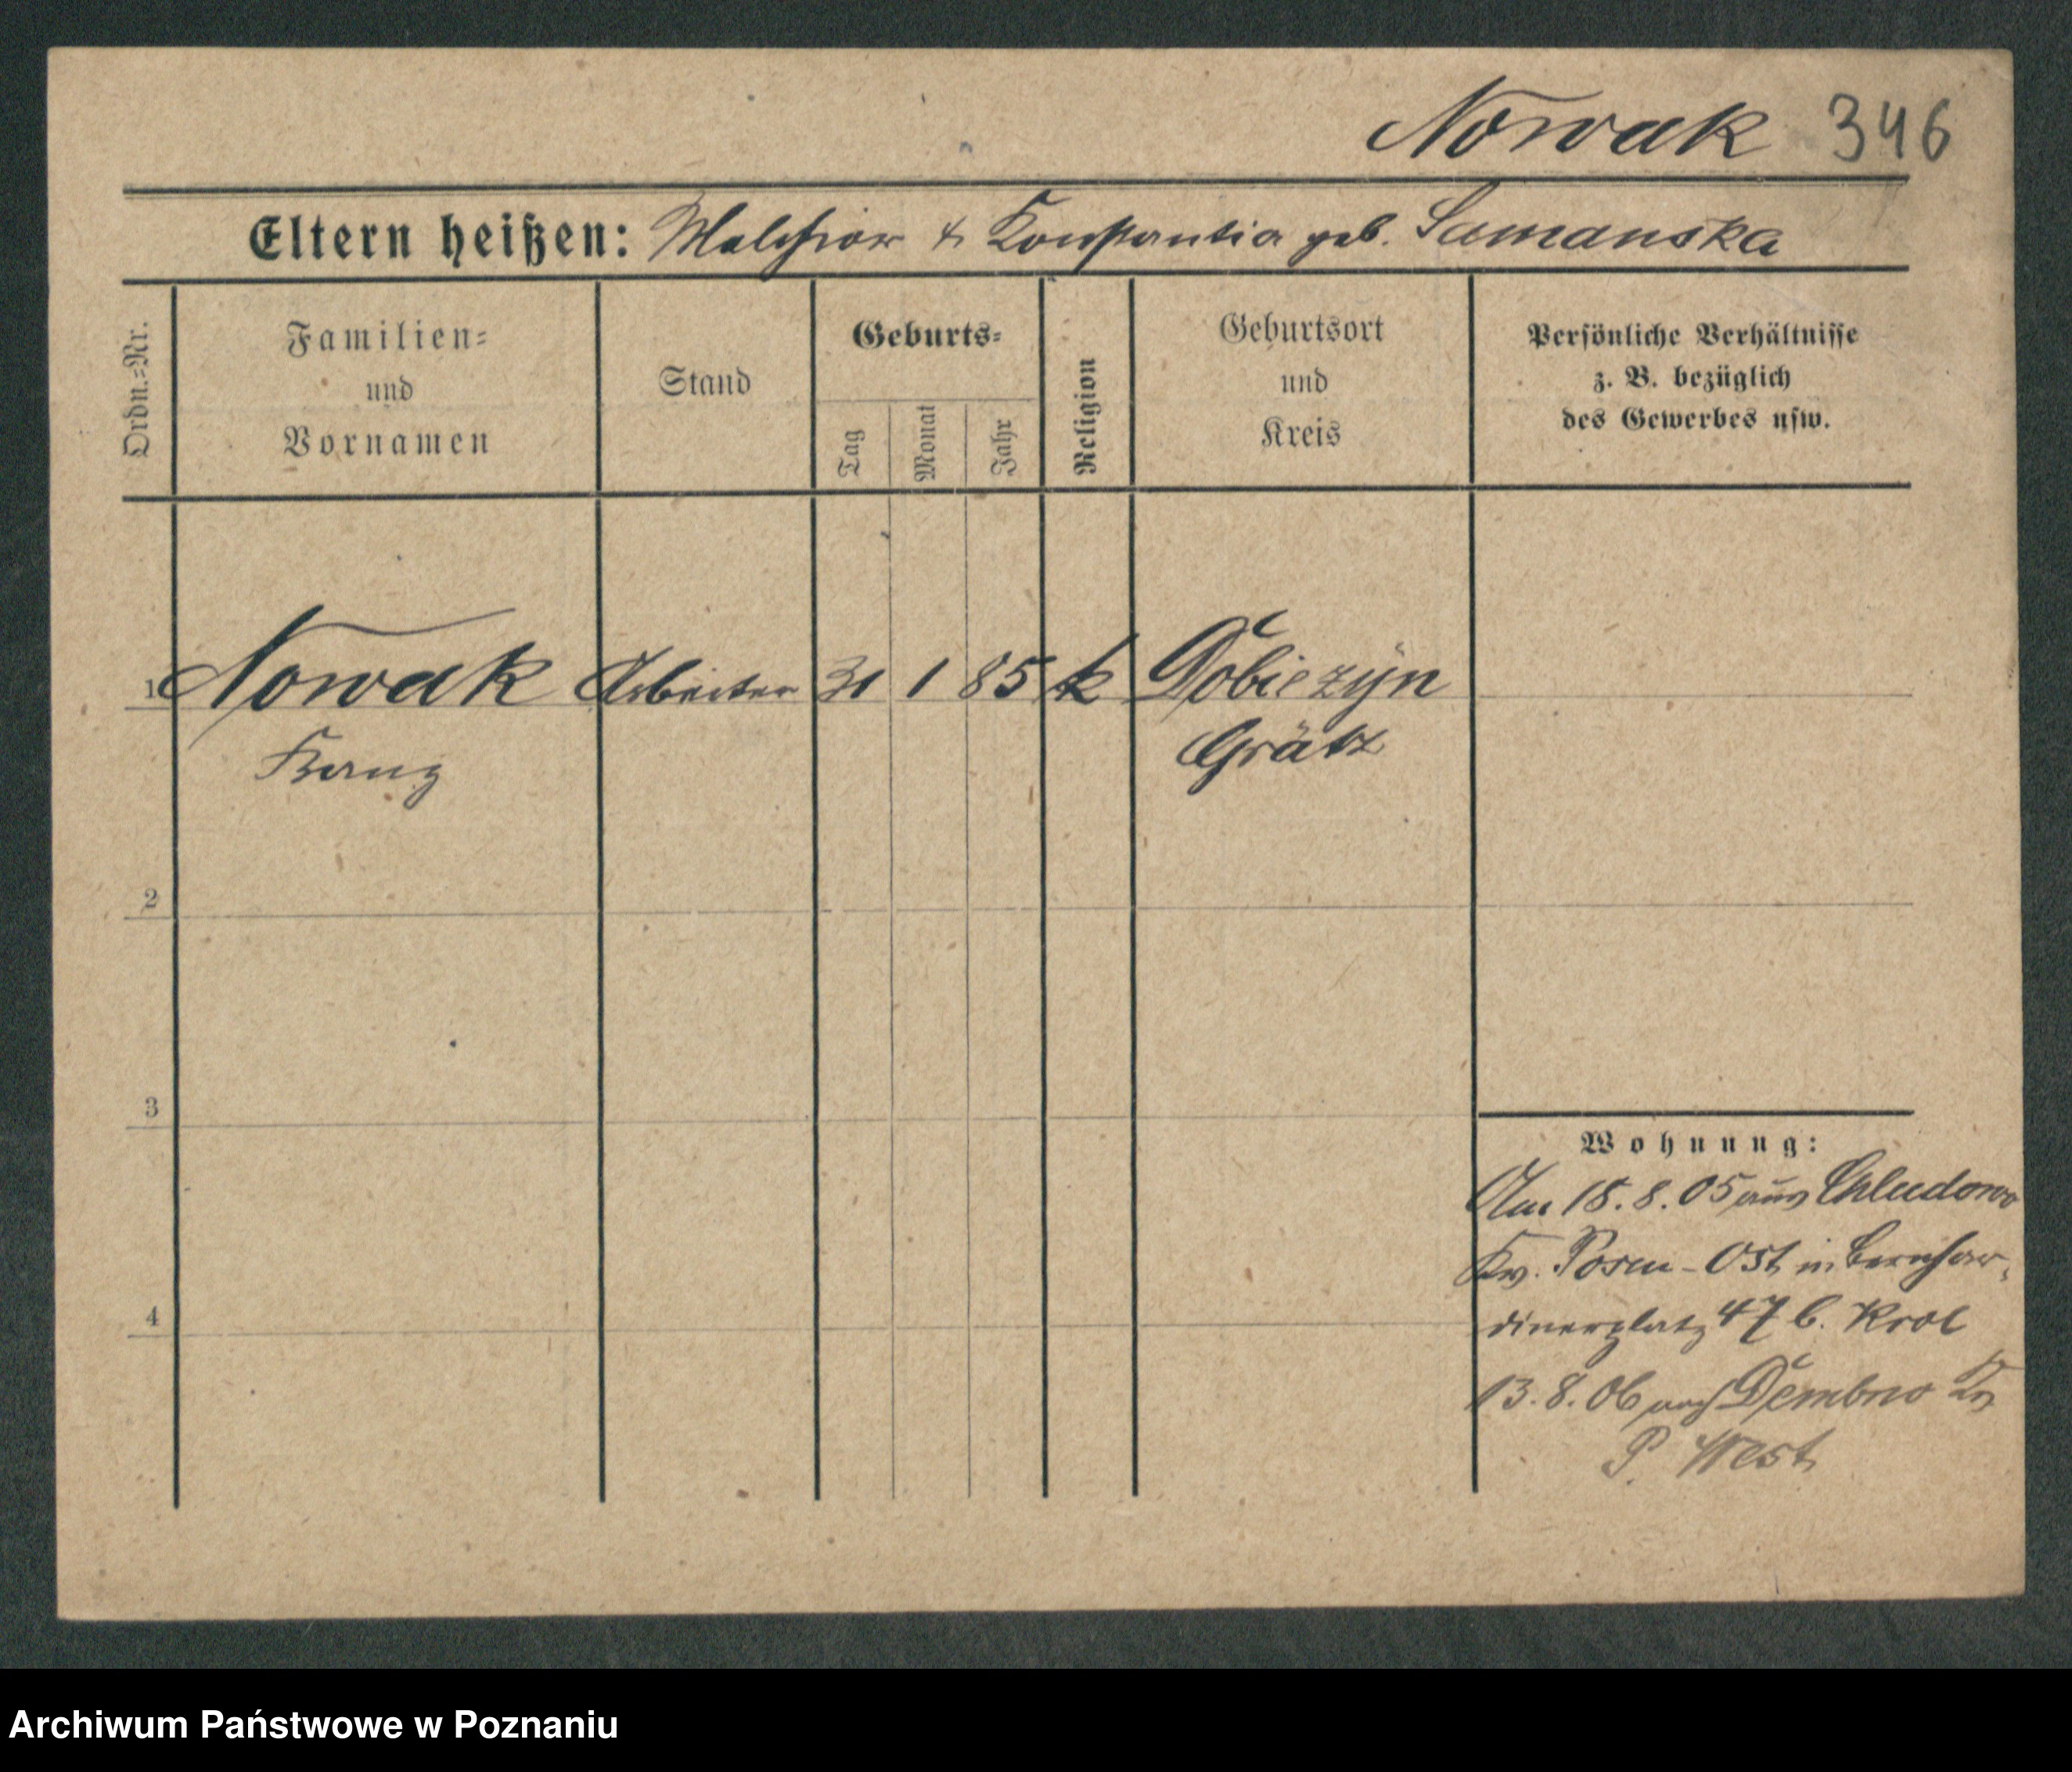 Nowak 346
Eltern heißen: Melchior & Konstantia geb. Samanska
Ordn.=Nr.
Familien=
und
Vornamen
Stand
Geburts=
Tag
Monat
Jahr
Religion
Geburtsort
und
Kreis
Persönliche Verhältnisse
z. B. bezüglich
des Gewerbes usw.
1 Nowak Arbeiter 31 1 85 k Dobiezyn
Franz Grätz
2
3
4
Wohnung:
Am 18.8.05 aus Chludowo
Kr. Posen-Ost in Bernhar-
dinerplatz 47 b. Krol
13.8.06 nach Dembno Kr
P. West